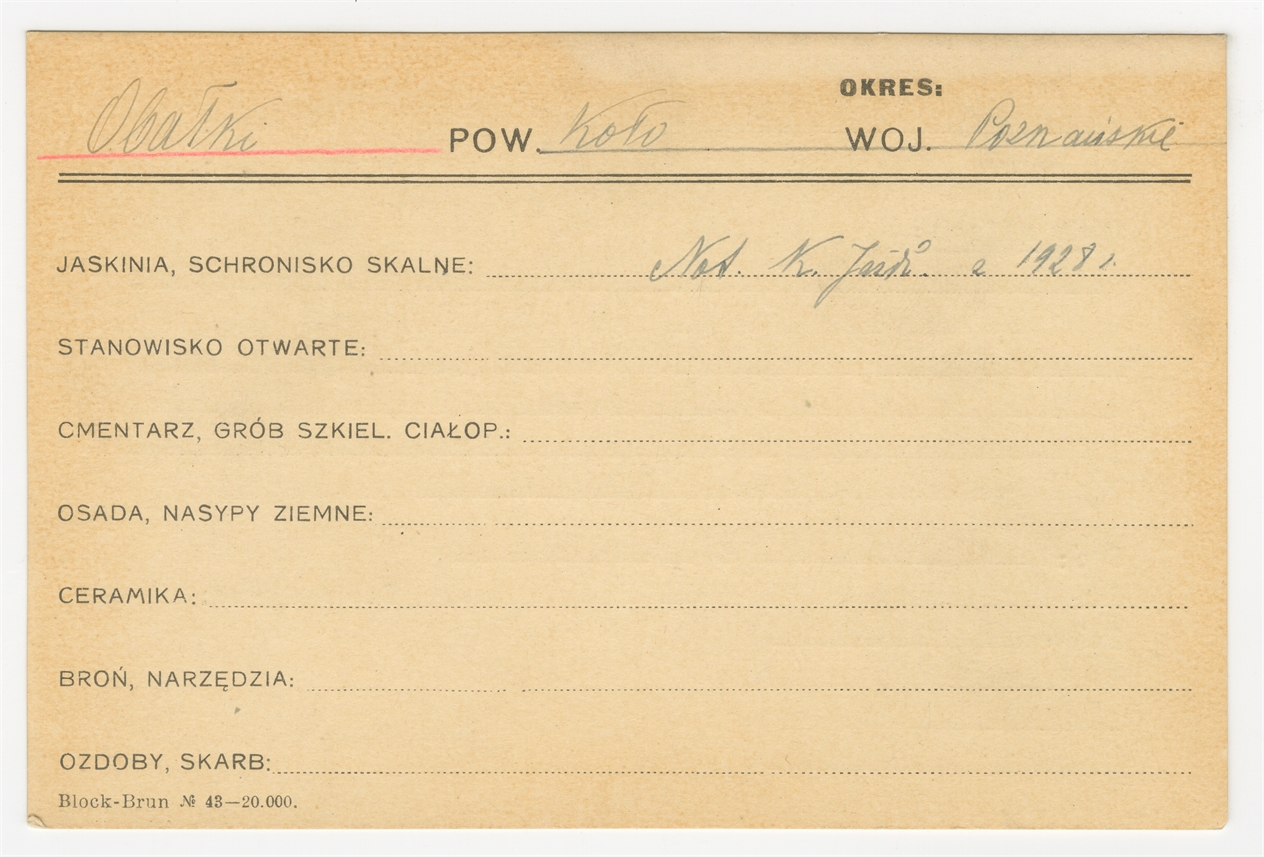 OKRES:
Obałki POW. Koło WOJ. Poznańskie
JASKINIA, SCHRONISKO SKALNE: Not. K. z 1928 r.
STANOWISKO OTWARTE:
CMENTARZ, GRÓB SZKIEL. CIAŁOP.:
OSADA, NASYPY ZIEMNE:
CERAMIKA:
BROŃ, NARZĘDZIA:
OZDOBY, SKARB:
Block-Brun № 43—20.000.